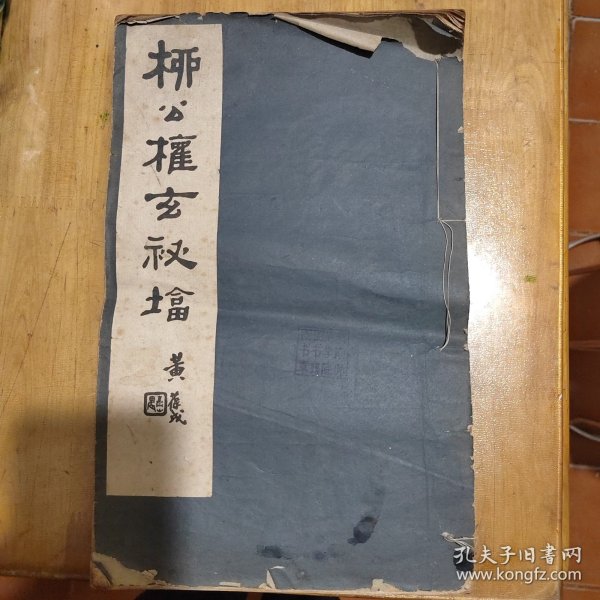 柳公權玄祕墖
黃葆戉
孔夫子旧書网
www.kongfz.com